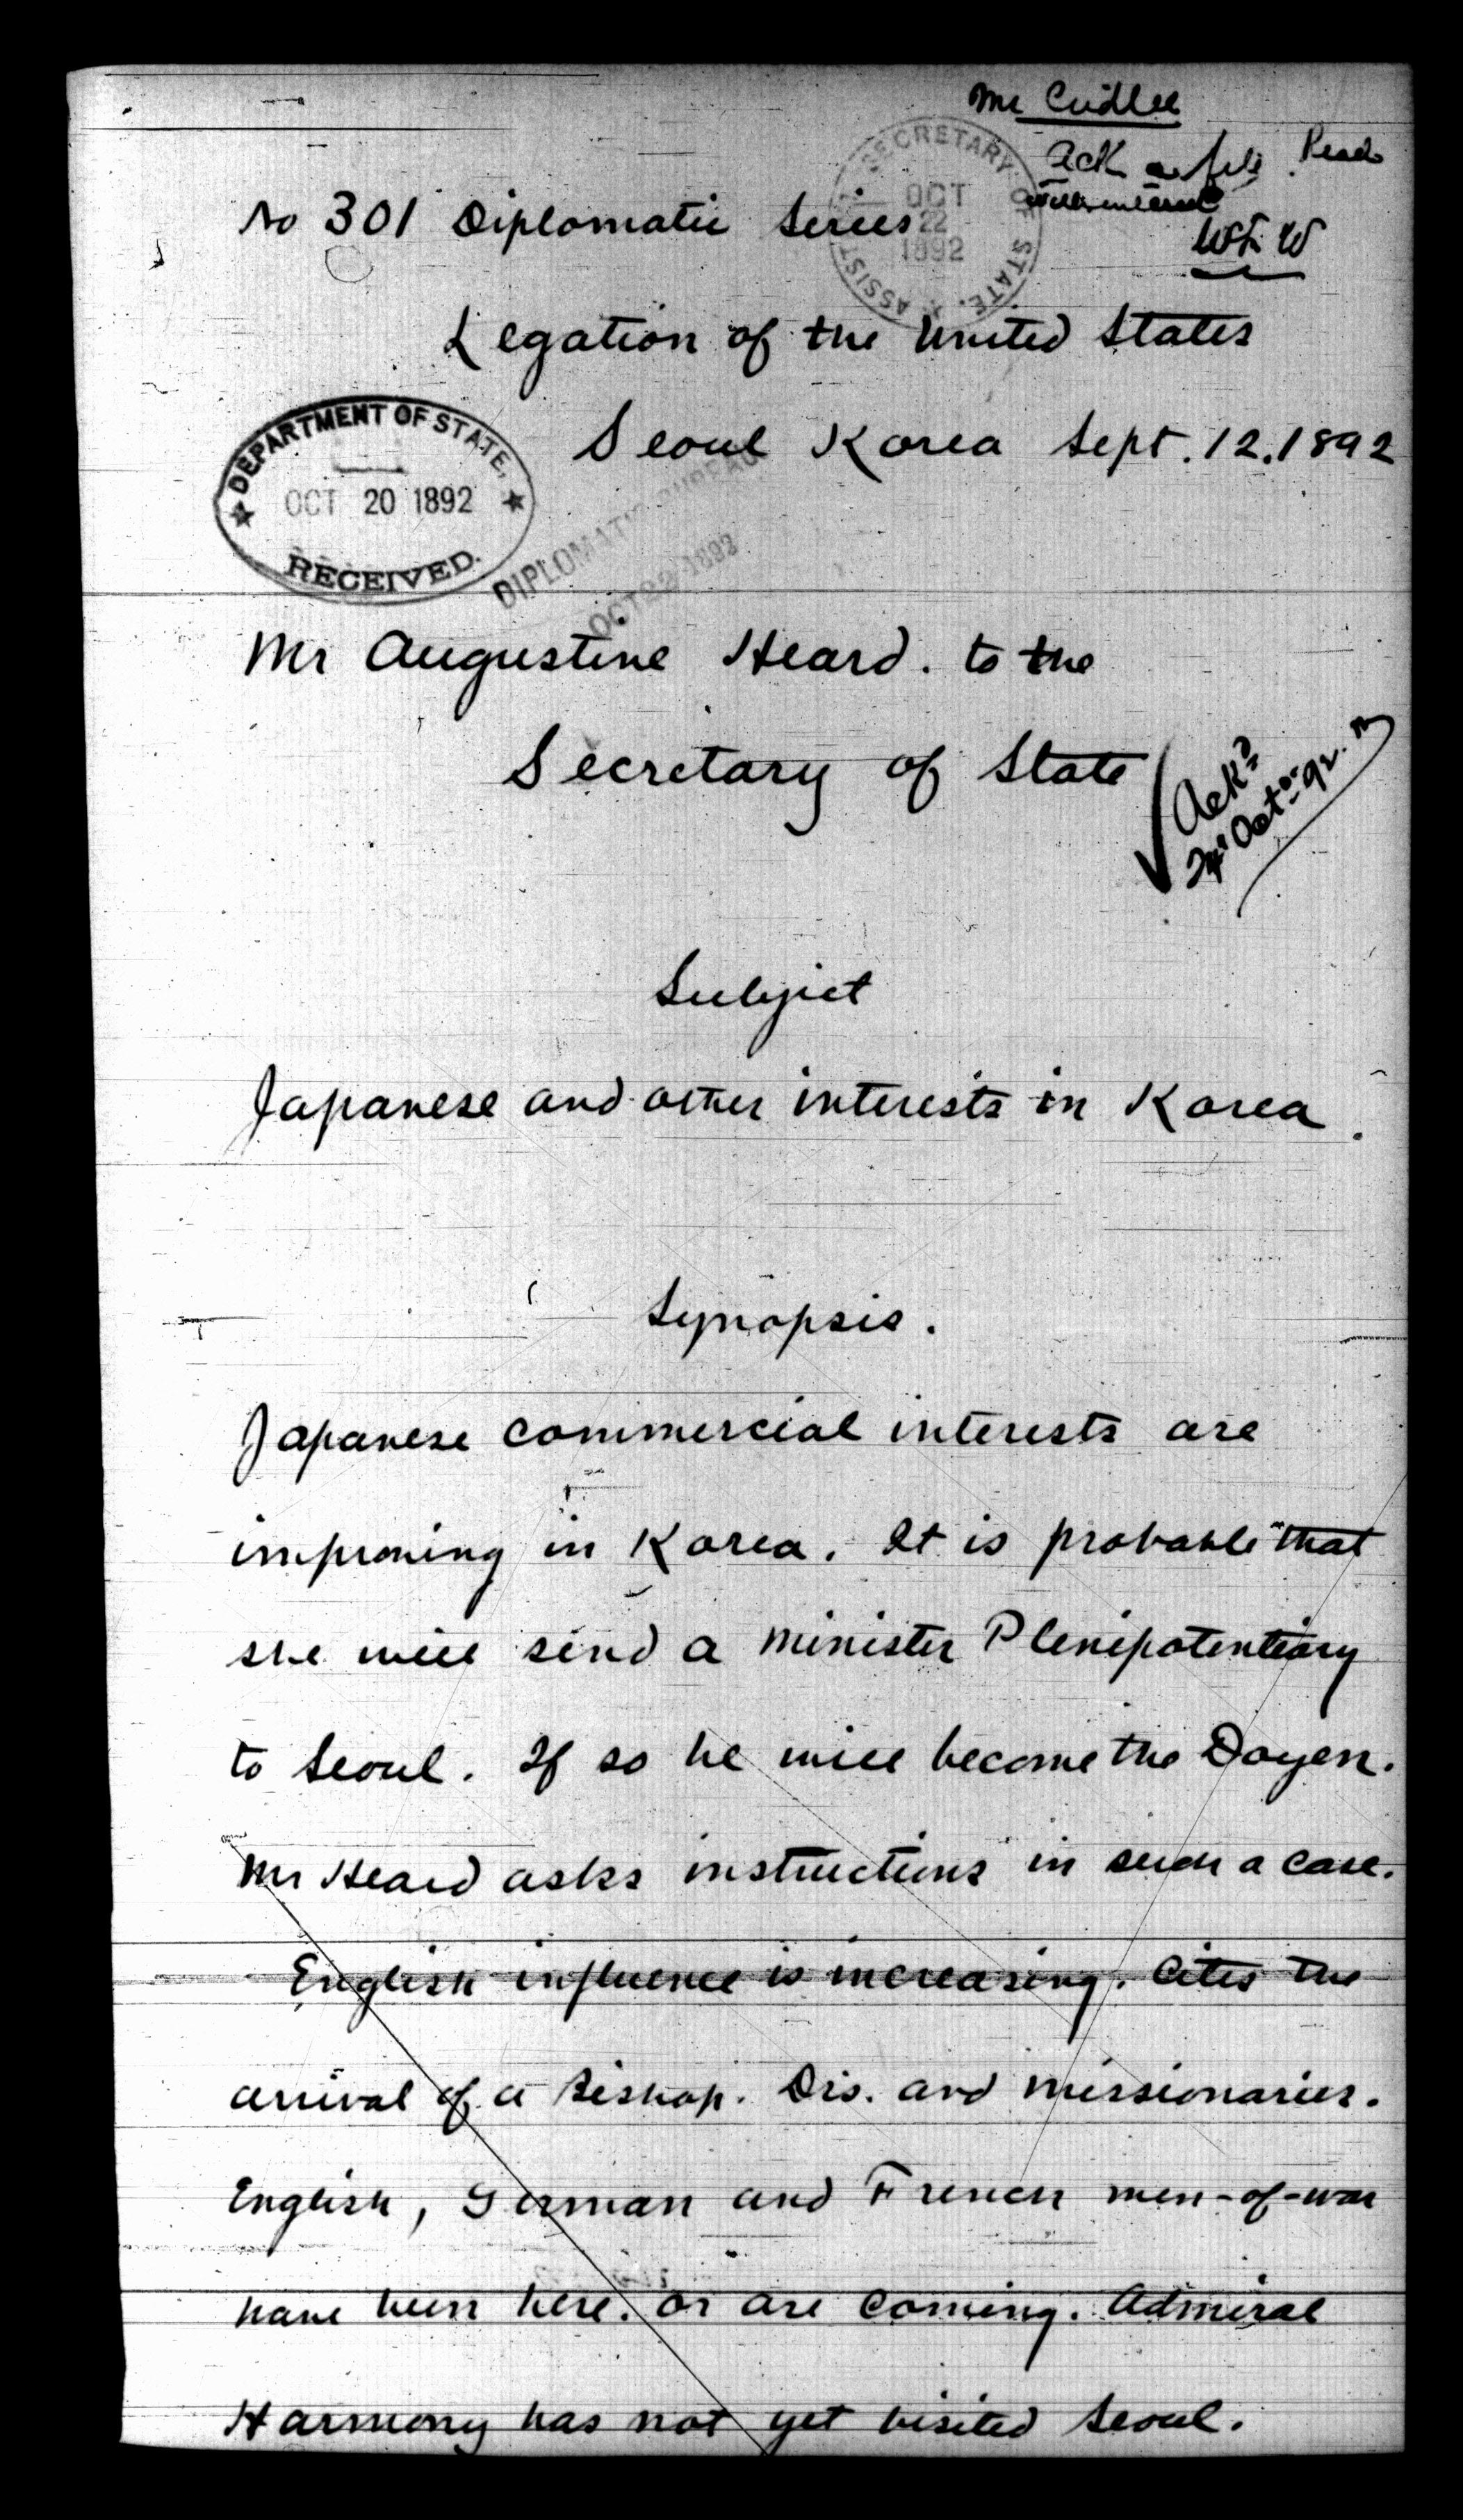 Mr Cridler
Ack
Read
No 301 Diplomatic Series
ASSIST. SECRETARY OF STATE.
OCT
22
1892
W F W
Legation of the United States
Seoul Korea Sept. 12. 1892
DEPARTMENT OF STATE,
OCT 20 1892
RECEIVED.
DIPLOMATIC BUREAU
OCT 22 1892
Mr Augustine Heard. to the
Secretary of State
Ackd
24 Oct 92.
Subject
Japanese and other interests in Korea.
Synopsis.
Japanese commercial interests are
improving in Korea. It is probable that
she will send a Minister Plenipotentiary
to Seoul. If so he will become the Doyen.
Mr Heard asks instructions in such a case.
English influence is increasing. Cites the
arrival of a Bishop. Drs. and missionaries.
English, German and French men-of-war
have been here. or are coming. Admiral
Harmony has not yet visited Seoul.